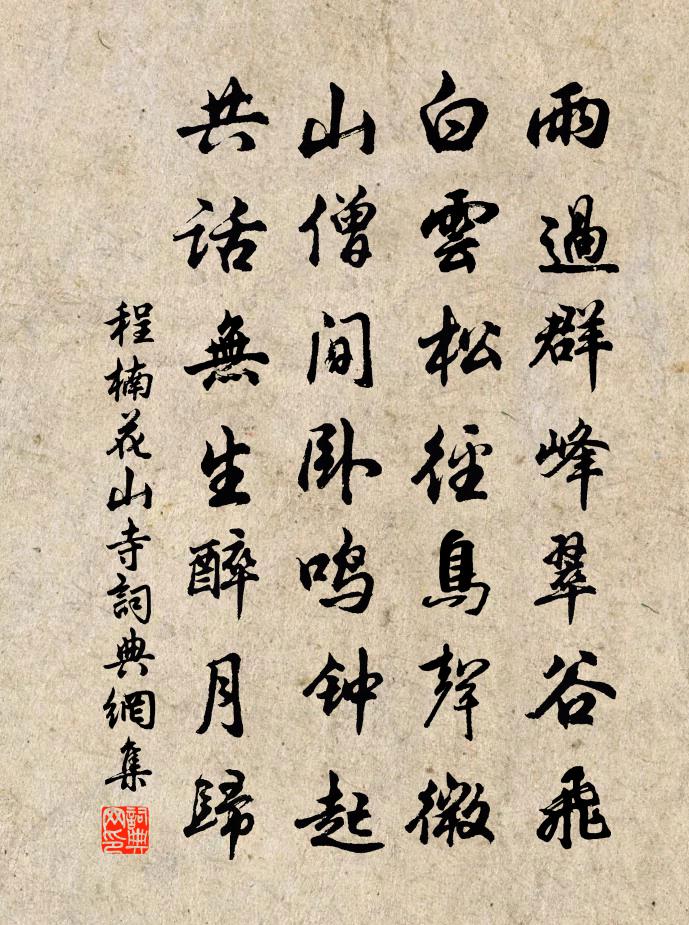 雨過群峰翠谷飛
白雲松徑鳥聲微
山僧閒卧鳴钟起
共话無生醉月歸
程楠花山寺詞典網集
詞典網印